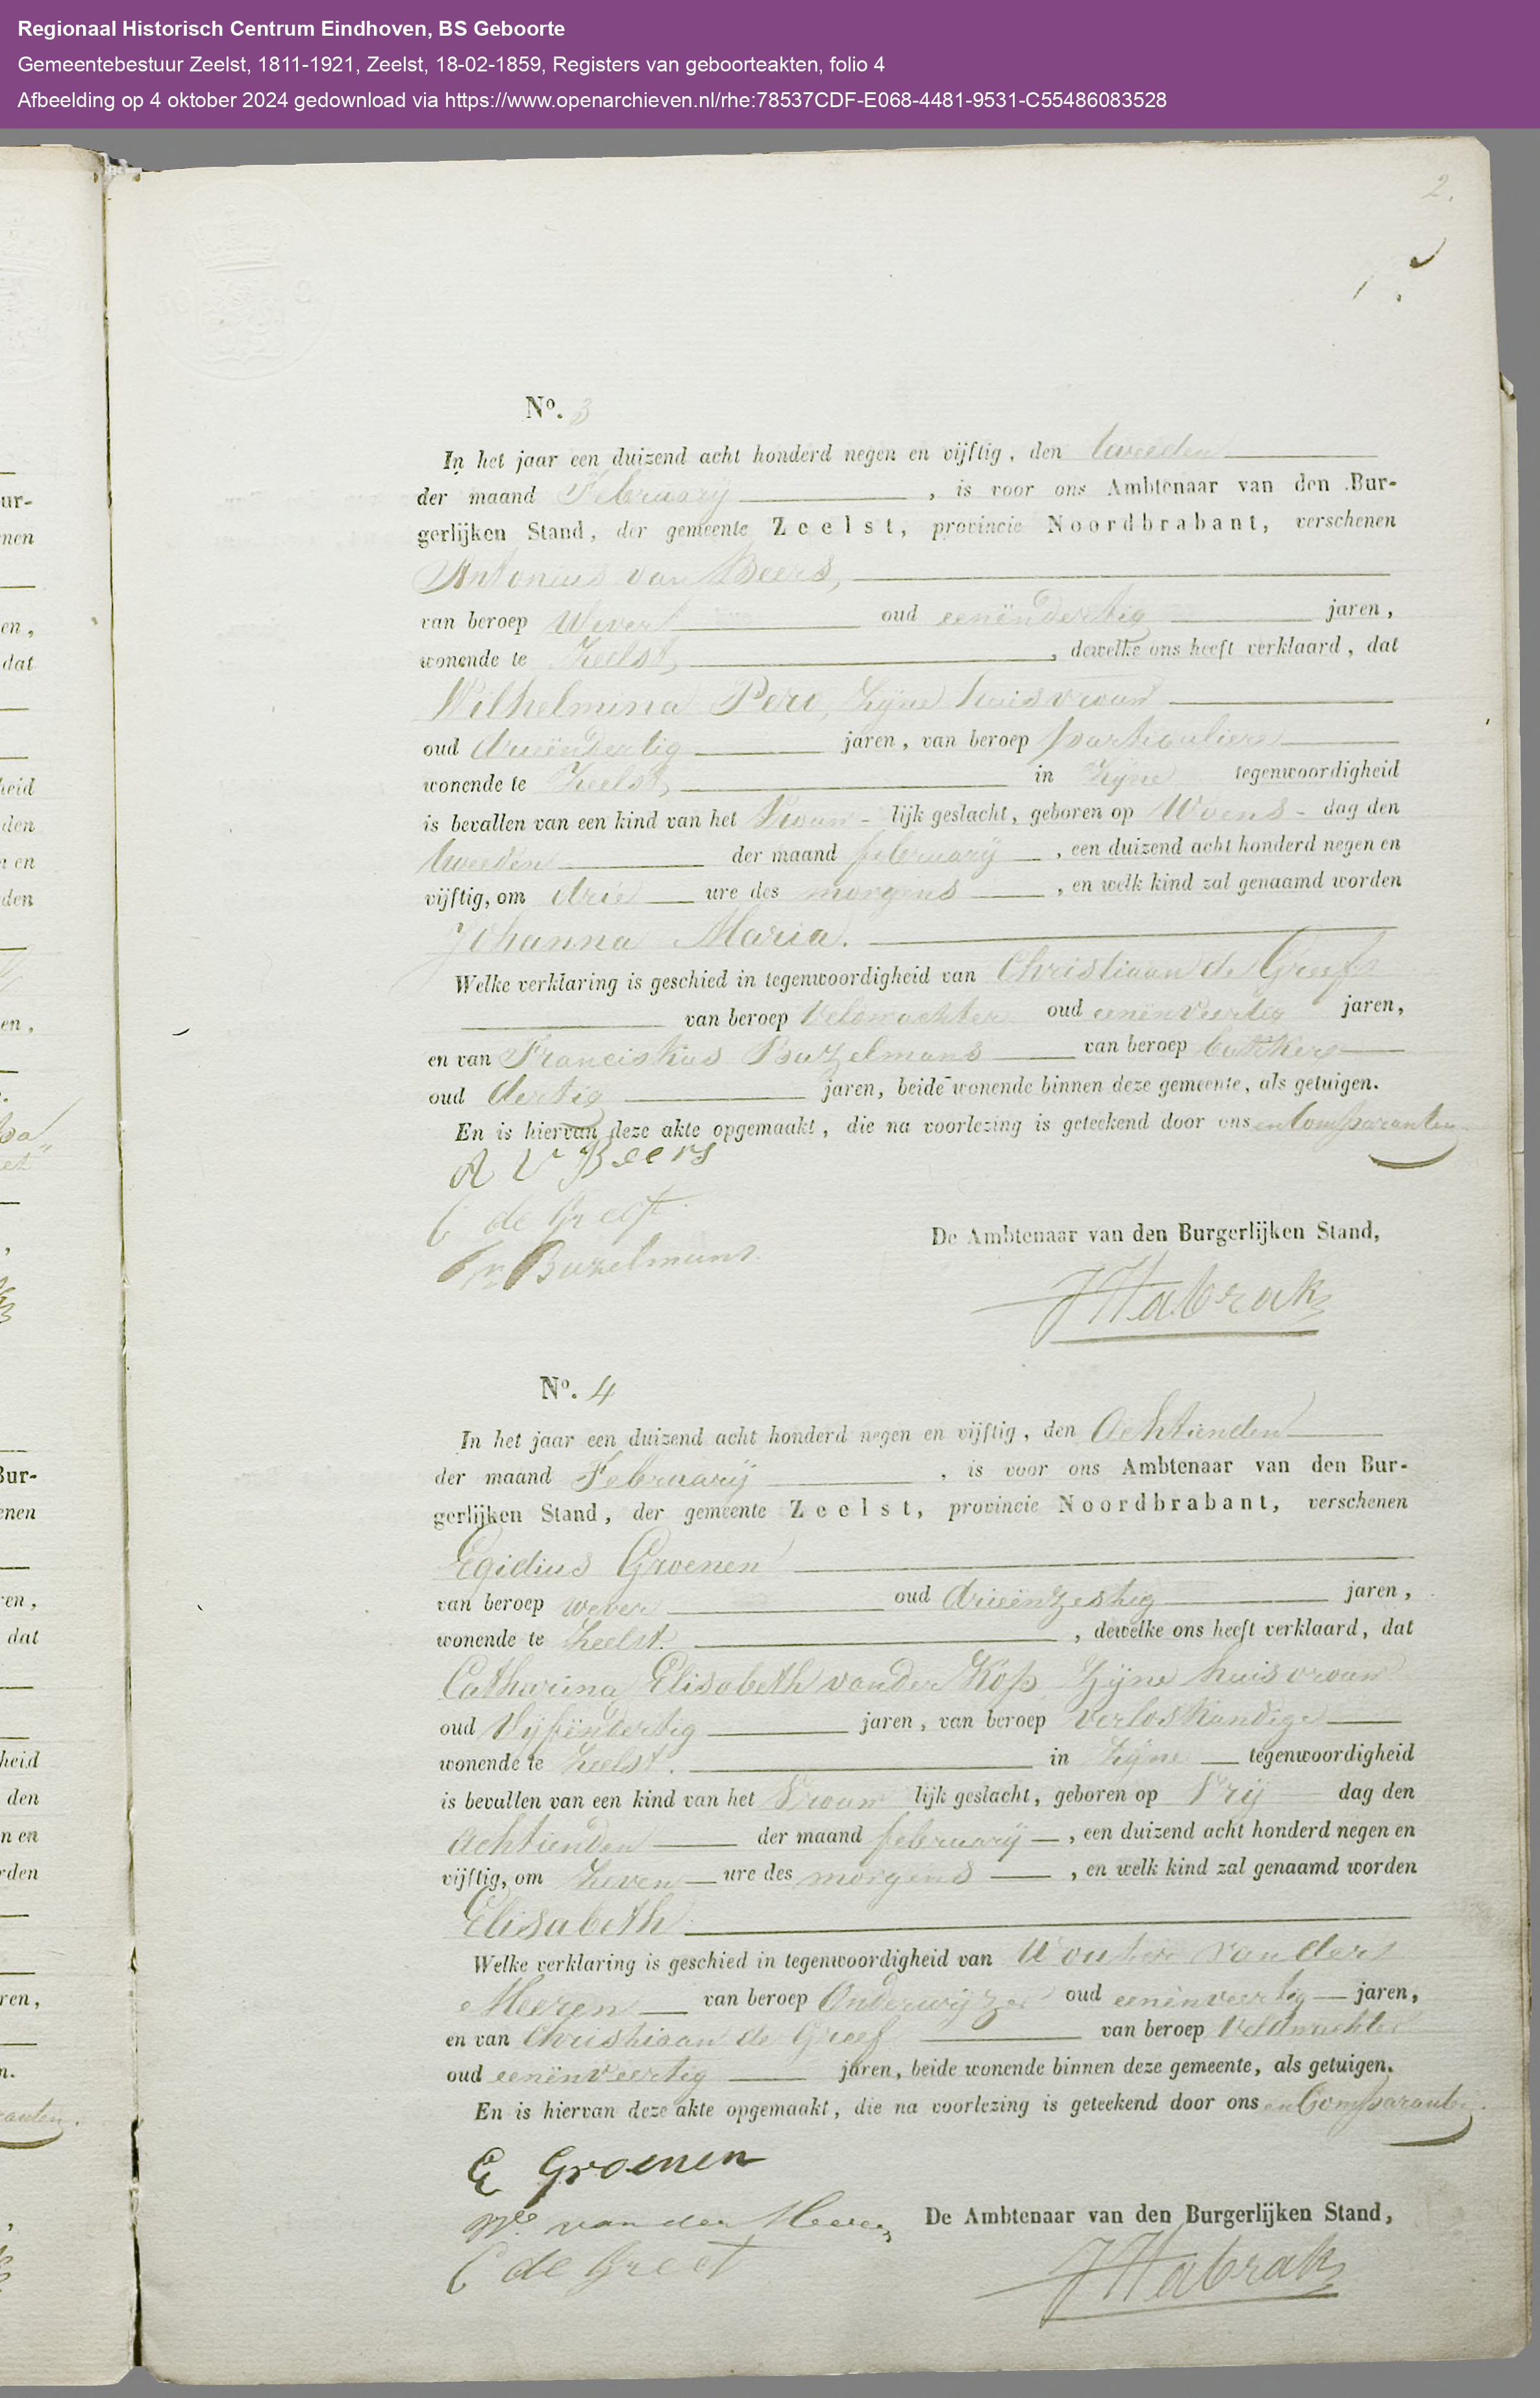 Regionaal Historisch Centrum Eindhoven, BS Geboorte
Gemeentebestuur Zeelst, 1811-1921, Zeelst, 18-02-1859, Registers van geboorteakten, folio 4
Afbeelding op 4 oktober 2024 gedownload via https://www.openarchieven.nl/rhe:78537CDF-E068-4481-9531-C55486083528
2.
No. 3
In het jaar een duizend acht honderd negen en vijftig, den tweeden
der maand February, is voor ons Ambtenaar van den Bur-
gerlijken Stand, der gemeente Zeelst, provincie Noordbrabant, verschenen
Antonius van Beers,
van beroep Wever oud eenëndertig jaren,
wonende te Zeelst, dewelke ons heeft verklaard, dat
Wilhelmina Pero, Zyne huisvrouw
oud drieëndertig jaren, van beroep particuliere
wonende te Zeelst, in Zyne tegenwoordigheid
is bevallen van een kind van het Vrouw - lijk geslacht, geboren op Woens - dag den
tweeden der maand february, een duizend acht honderd negen en
vijftig, om drie ure des morgens, en welk kind zal genaamd worden
Johanna Maria.
Welke verklaring is geschied in tegenwoordigheid van Christiaan de Greef
van beroep Veldwachter oud eenënveertig jaren,
en van Franciskus Buzelmans van beroep bakker
oud dertig jaren, beide wonende binnen deze gemeente, als getuigen.
En is hiervan deze akte opgemaakt, die na voorlezing is geteekend door ons en Comparanten
A V Beers
C de Greef
Fr Buzelmans.
De Ambtenaar van den Burgerlijken Stand,
No. 4
In het jaar een duizend acht honderd negen en vijftig, den Achttienden
der maand February, is voor ons Ambtenaar van den Bur-
gerlijken Stand, der gemeente Zeelst, provincie Noordbrabant, verschenen
Egidius Groenen
van beroep wever oud drieënzestig jaren,
wonende te Zeelst. , dewelke ons heeft verklaard, dat
Catharina Elisabeth van der Kop Zyne huisvrouw
oud Vijfëndertig jaren, van beroep verloskundige
wonende te Zeelst. in Zyne tegenwoordigheid
is bevallen van een kind van het Vrouw lijk geslacht, geboren op Vrij dag den
Achttienden der maand february, een duizend acht honderd negen en
vijftig, om Zeven ure des morgens, en welk kind zal genaamd worden
Elisabeth
Welke verklaring is geschied in tegenwoordigheid van Wouter van der
Meeren van beroep Onderwyzer oud eenënveertig jaren,
en van Christiaan de Greef van beroep Veldwachter
oud eenënveertig jaren, beide wonende binnen deze gemeente, als getuigen.
En is hiervan deze akte opgemaakt, die na voorlezing is geteekend door ons en Comparanten.
E Groenen
W. van der Meeren
C de Greef
De Ambtenaar van den Burgerlijken Stand,